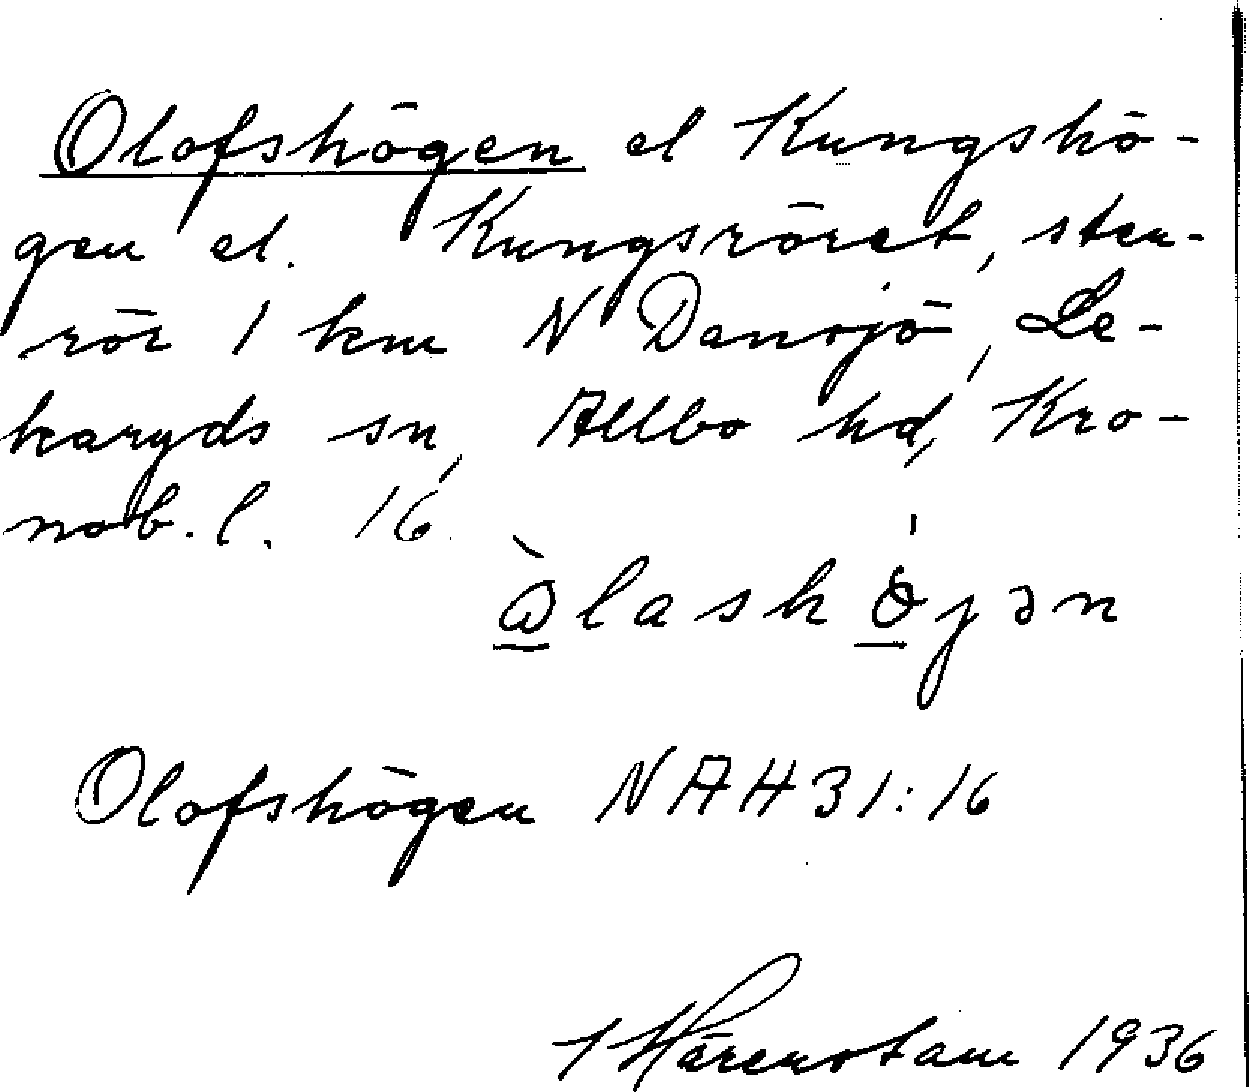 Olofshögen el Kungshö-
gen el. Kungsröret, sten-
rör 1 km N Dansjö, Le-
karyds sn, Allbo hd, Kro-
nob. l. 16
Olofshögen NAH 31:16
Härenstam 1936